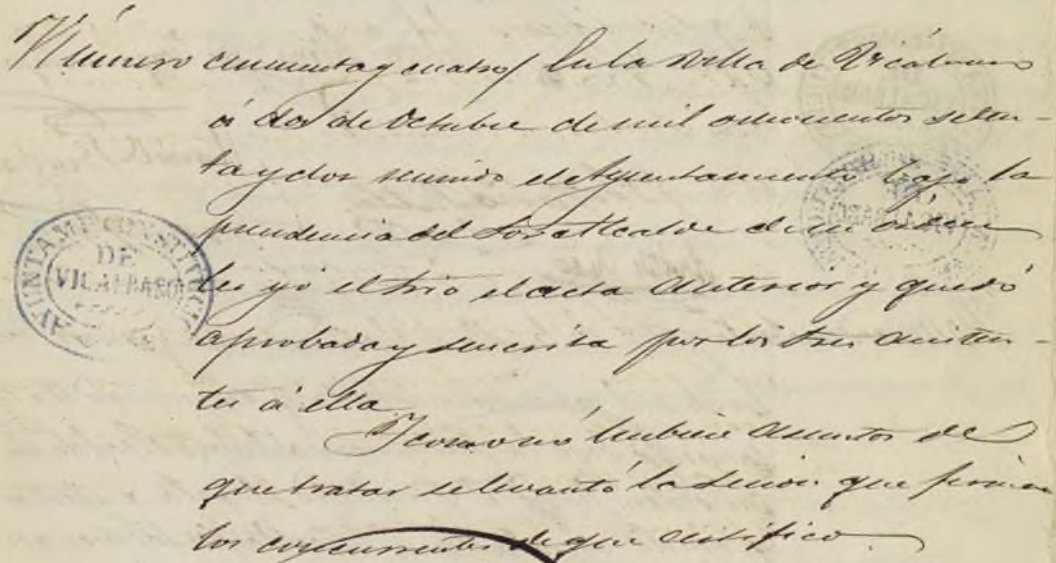 Número cincuenta y cuatro / En la Villa de Vicálvaro
á dos de Octubre de mil ochocientos seten-
ta y dos reunido el Ayuntamiento bajo la
presidencia del Sor Alcalde de su orden
lei yo el Srio el acta anterior y quedó
aprobada y suscrita por los Sres asisten-
tes á ella.
Y como nó hubiere asuntos de
que tratar se levantó la sesion que firman
los concurrentes de que certifico.
AYUNTAMº CONSTITUCIO
DE
VICALBARO